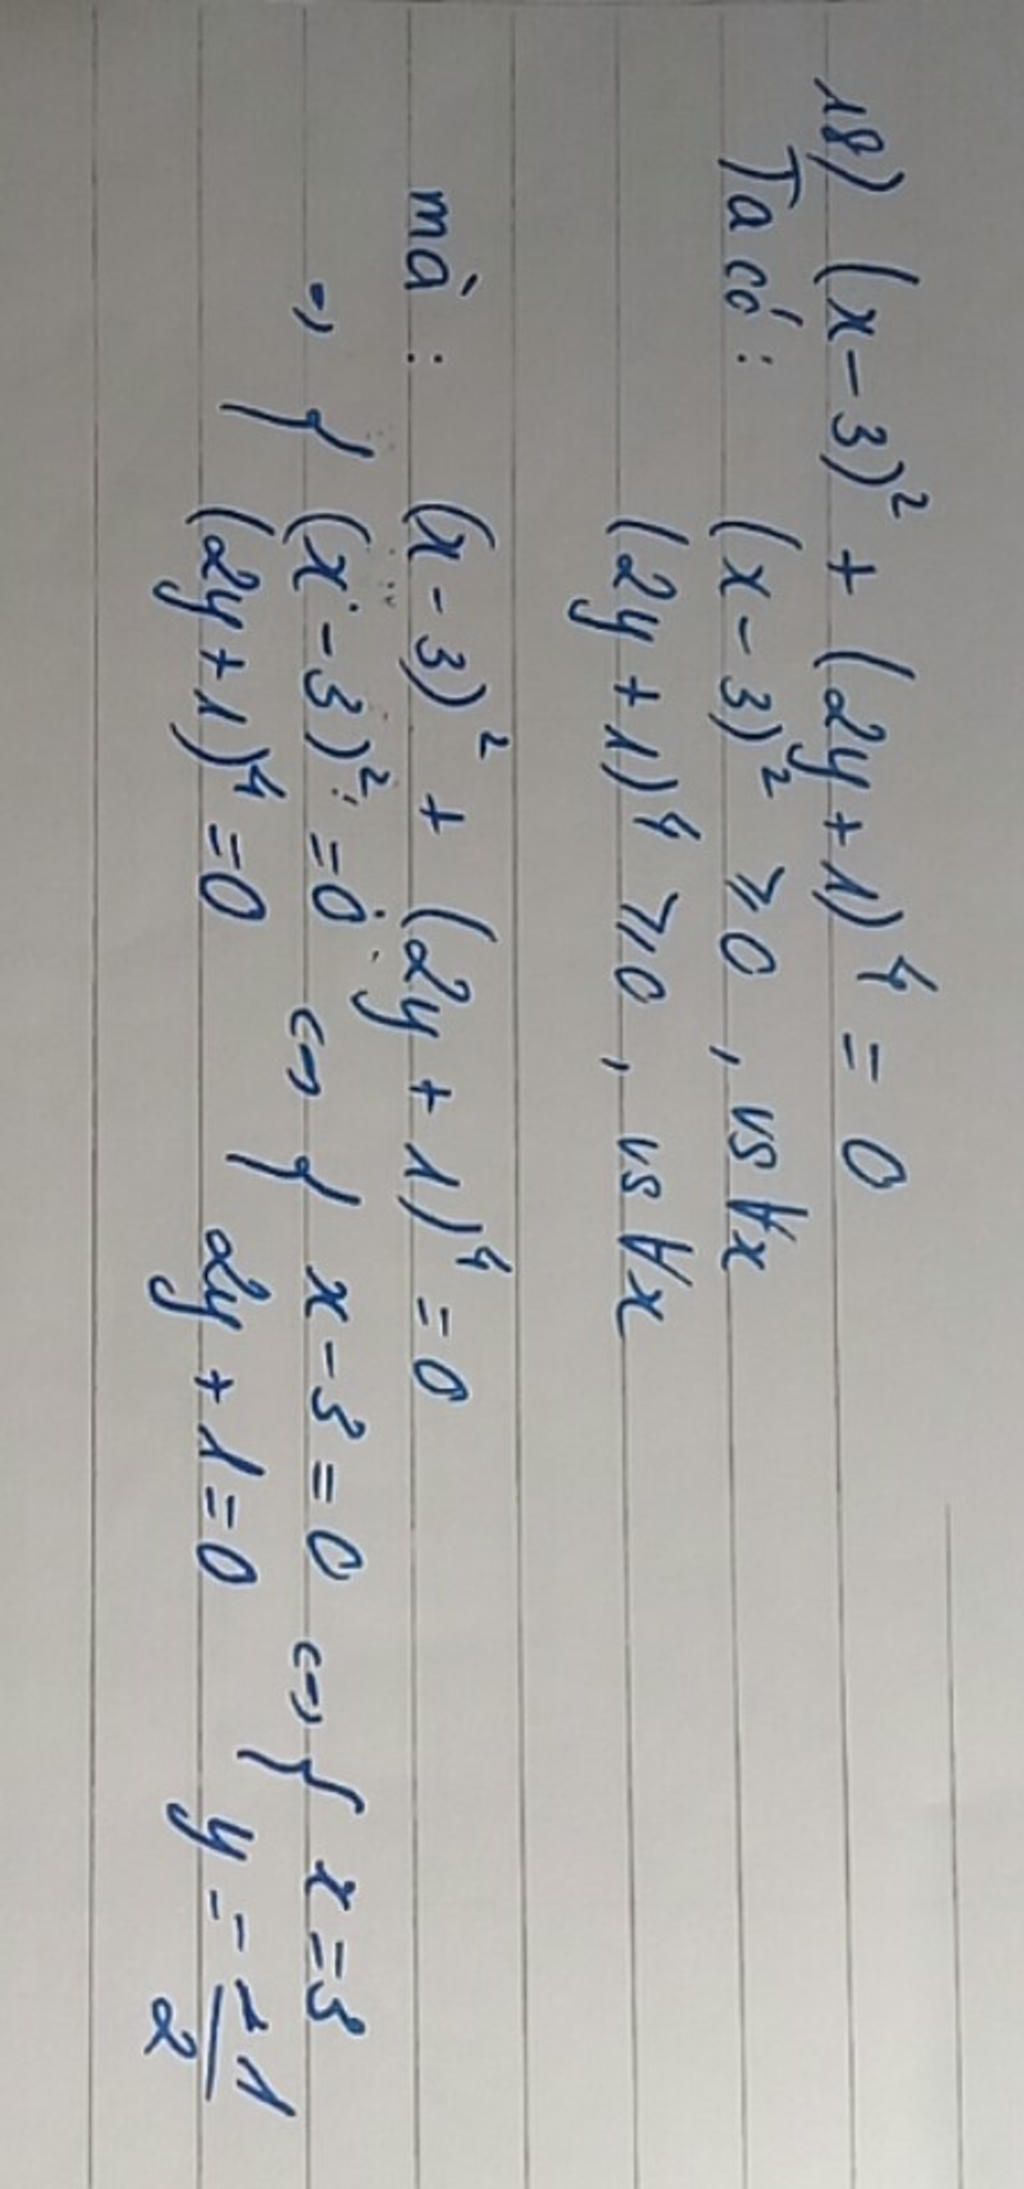 18) (x-3)² + (2y+1)⁴ = 0
Ta có: (x-3)² ⩾0, vs ∀x
(2y+1)⁴ ⩾0, vs ∀x
mà: (x-3)² + (2y+1)⁴ =0
=> { (x-3)² =0 <=> { x-3=0 <=> { x=3
(2y+1)⁴ =0 2y+1=0 y = -1/2